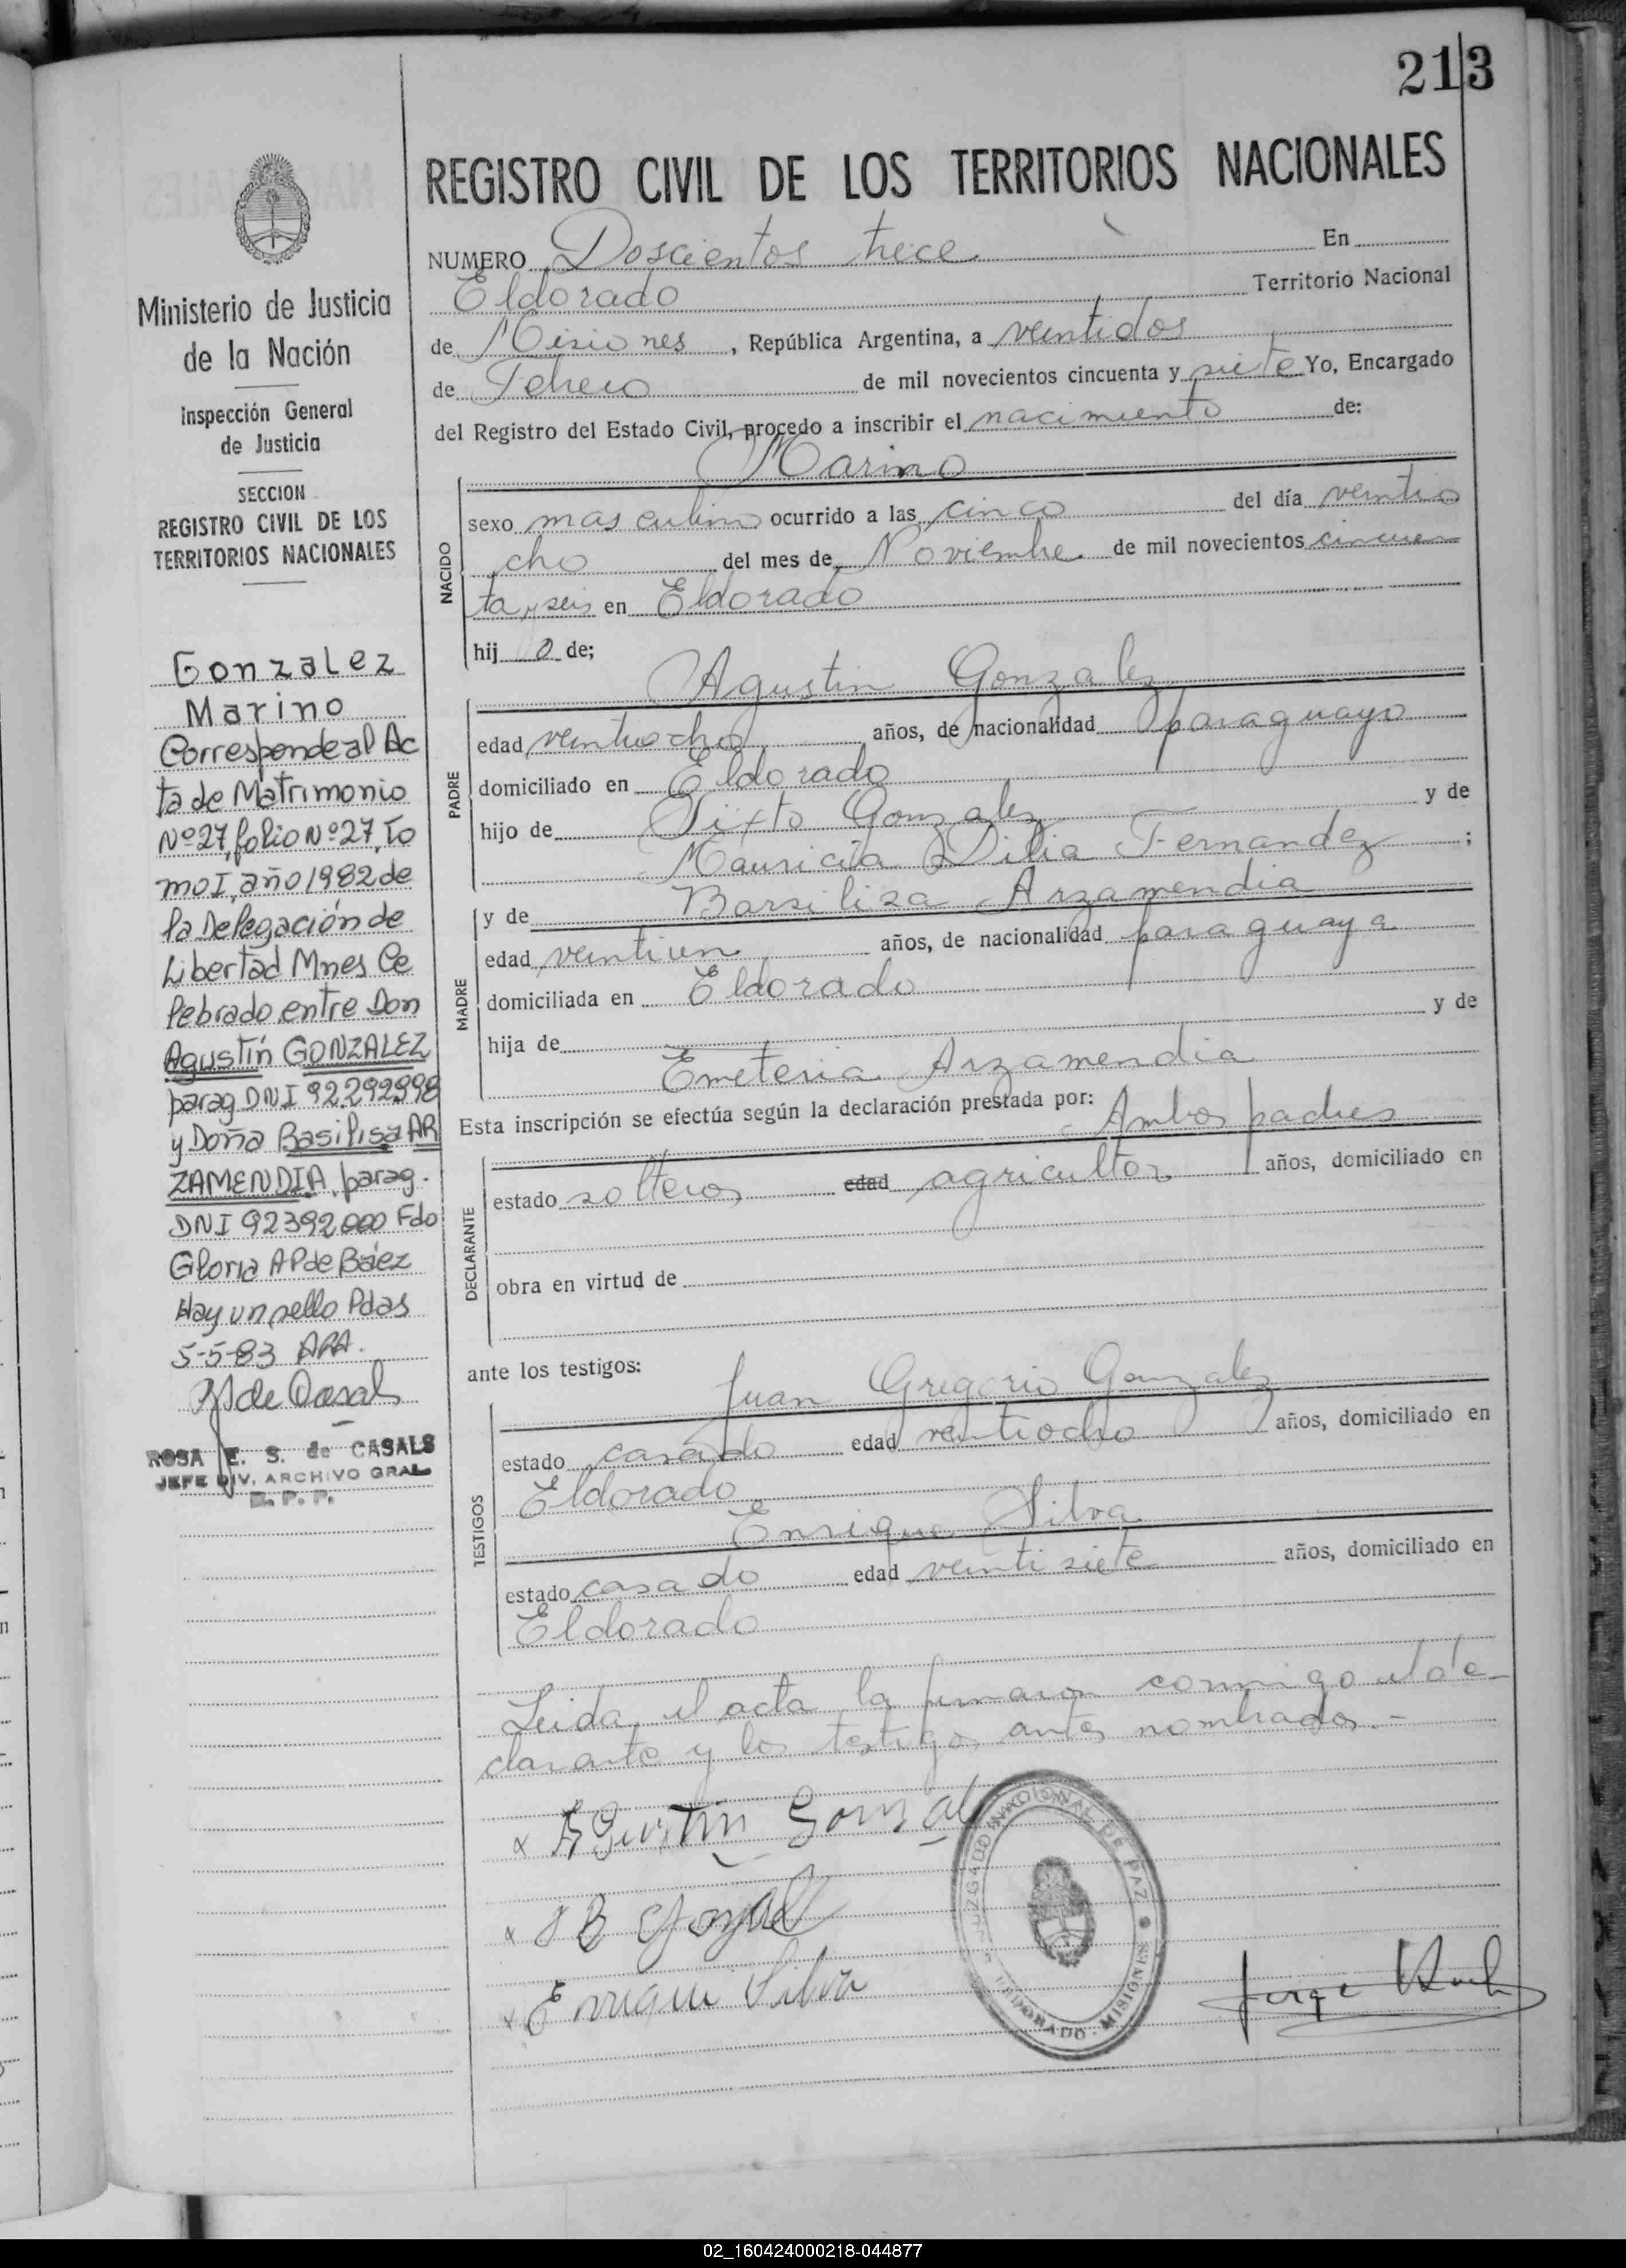 213
REGISTRO CIVIL DE LOS TERRITORIOS NACIONALES
NUMERO Doscientos trece En
Eldorado Territorio Nacional
de Misiones, República Argentina, a veintidos
de Febrero de mil novecientos cincuenta y siete Yo, Encargado
del Registro del Estado Civil, procedo a inscribir el nacimiento de:
Marino
NACIDO
sexo masculino ocurrido a las cinco del día ventio
cho del mes de Noviembre de mil novecientos cincuen
ta y seis en Eldorado
hijo de;
Agustin Gonzalez
PADRE
edad ventiocho años, de nacionalidad paraguayo
domiciliado en Eldorado
hijo de Sixto Gonzalez y de
Mauricia Dilia Fernandez ;
y de Barsilisa Arzamendia
MADRE
edad veintiun años, de nacionalidad paraguaya
domiciliada en Eldorado
hija de y de
Emeteria Arzamendia
Esta inscripción se efectúa según la declaración prestada por: Ambos padres
DECLARANTE
estado solteros edad agricultor años, domiciliado en
obra en virtud de
ante los testigos:
Juan Gregorio Gonzalez
TESTIGOS
estado casado edad ventiocho años, domiciliado en
Eldorado
Enrique Silva
estado casado edad veintisiete años, domiciliado en
Eldorado
Leida el acta la firmaron conmigo el de-
clarante y los testigos antes nombrados.-
x Agustin Gonzal
x
x Enrique Silva
JUZGADO NACIONAL DE PAZ
ELDORADO - MISIONES
Jorge
Ministerio de Justicia
de la Nación
Inspección General
de Justicia
SECCION
REGISTRO CIVIL DE LOS
TERRITORIOS NACIONALES
Gonzalez
Marino
Corresponde al Ac
ta de Matrimonio
Nº 27, folio Nº 27, To
mo I, año 1982 de
la Delegación de
Libertad Mnes Ce
lebrado entre Don
Agustín GONZALEZ
parag DNI 92.292.998
y Doña Basilisa AR
ZAMENDIA, parag.
DNI 92392000 Fdo
Gloria A P de Báez
Hay un sello Pdas
5-5-83 ARA.
R S de Casals
ROSA E. S. de CASALS
JEFE DIV. ARCHIVO GRAL
R. P. P.
02_160424000218-044877